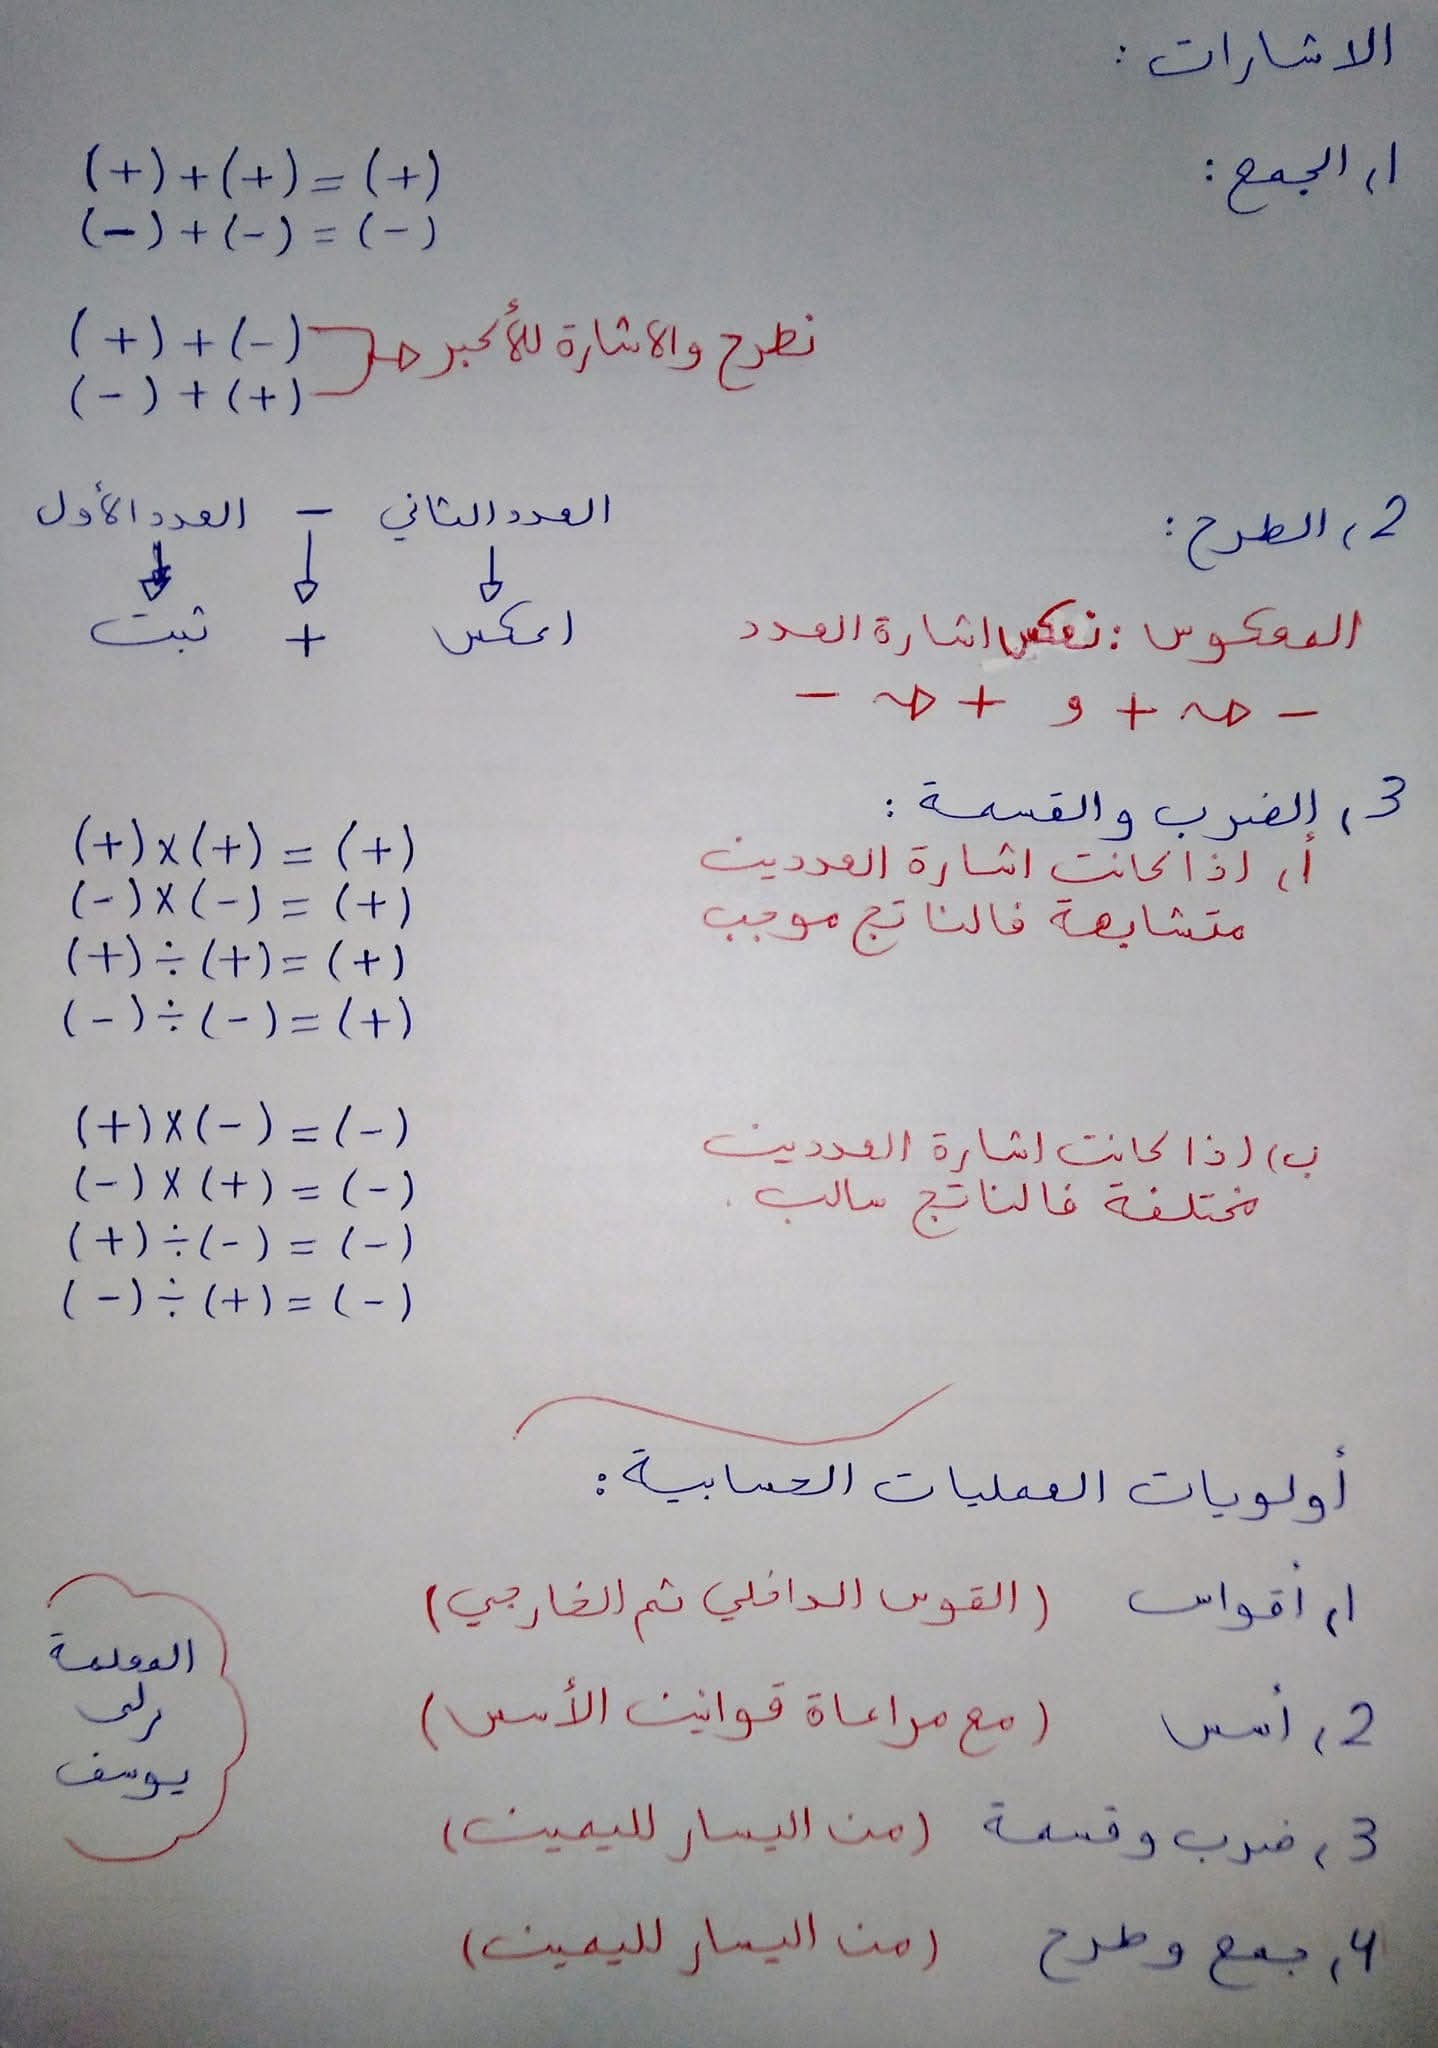 الاشارات :
1) الجمع :
(+) + (+) = (+)
(-) + (-) = (-)
(+) + (-)
(-) + (+)
نطرح والاشارة للأكبر
2) الطرح :
العدد الأول - العدد الثاني
ثبت + اعكس
المعكوس : نعكس اشارة العدد
- → + و + → -
3) الضرب والقسمة :
أ) اذا كانت اشارة العددين
متشابهة فالناتج موجب
(+) × (+) = (+)
(-) × (-) = (+)
(+) ÷ (+) = (+)
(-) ÷ (-) = (+)
ب) اذا كانت اشارة العددين
مختلفة فالناتج سالب .
(+) × (-) = (-)
(-) × (+) = (-)
(+) ÷ (-) = (-)
(-) ÷ (+) = (-)
أولويات العمليات الحسابية :
1) أقواس (القوس الداخلي ثم الخارجي)
2) أسس (مع مراعاة قوانين الأسس)
3) ضرب وقسمة (من اليسار لليمين)
4) جمع وطرح (من اليسار لليمين)
المعلمة
يوسف